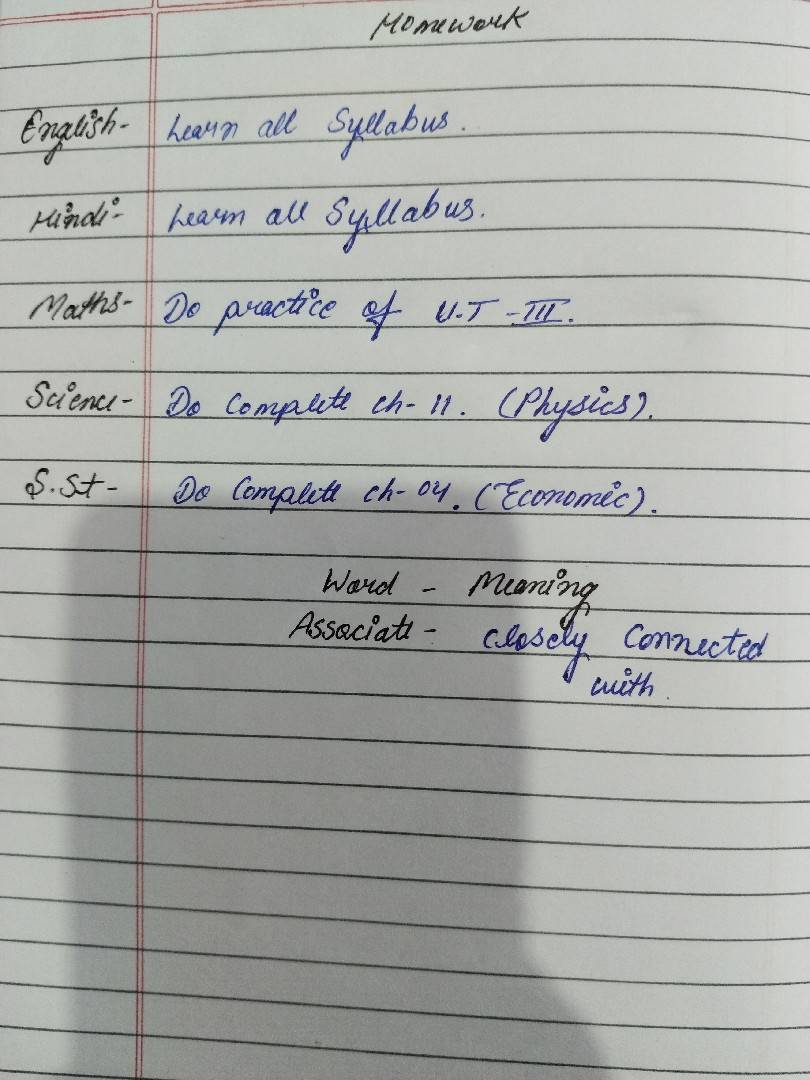 Homework
English- Learn all Syllabus.
Hindi- Learn all Syllabus.
Maths- Do practice of U.T-III.
Science- Do Complete ch-11. (Physics).
S.St- Do Complete ch-04. (Economic).
Word - Meaning
Associate - closely Connected
with.